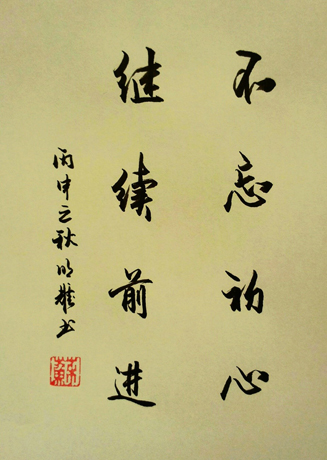 不忘初心
继续前进
丙申之秋明辉书